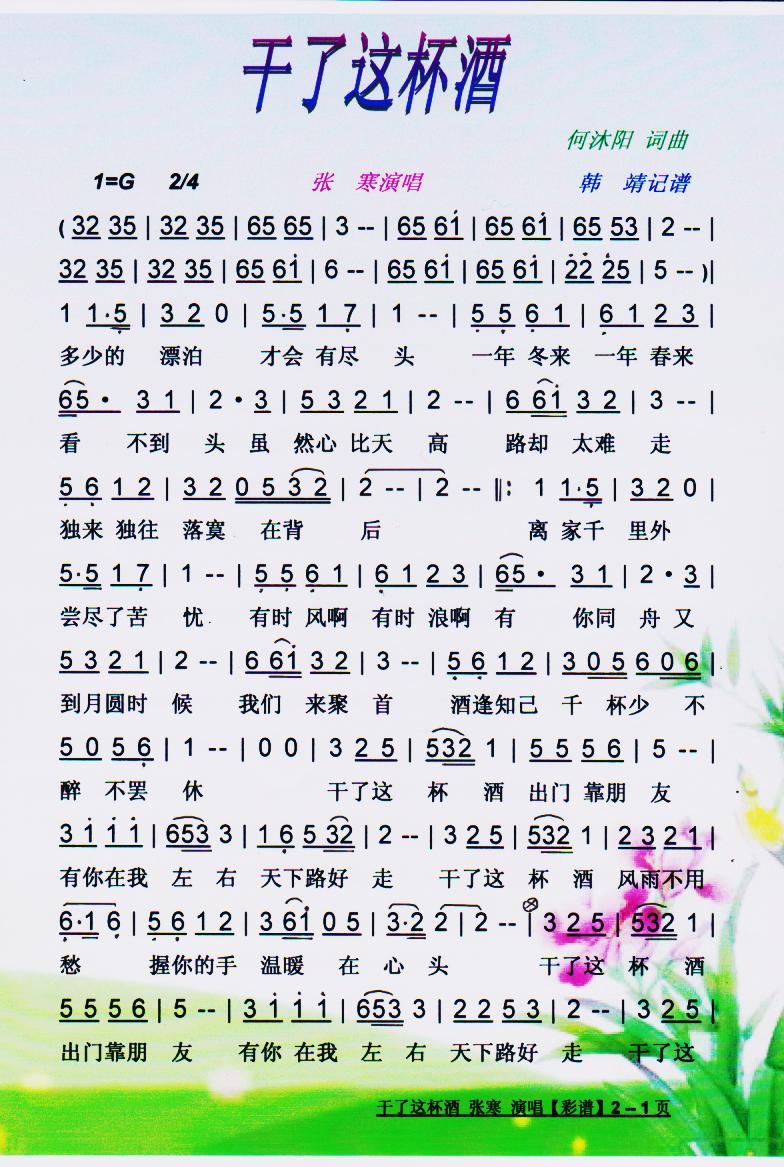 干了这杯酒
何沐阳 词曲
1=G 2/4 张 寒演唱 韩 靖记谱
( 32 35 | 32 35 | 65 65 | 3 -- | 65 61 | 65 61 | 65 53 | 2 -- |
32 35 | 32 35 | 65 61 | 6 -- | 65 61 | 65 61 | 22 25 | 5 -- )|
1 1·5 | 3 2 0 | 5·5 1 7 | 1 -- | 5 5 6 1 | 6 1 2 3 |
多少的 漂泊 才会 有尽 头 一年 冬来 一年 春来
65· 3 1 | 2 · 3 | 5 3 2 1 | 2 -- | 6 61 3 2 | 3 -- |
看 不到 头 虽 然心 比天 高 路却 太难 走
5 6 1 2 | 3 2 0 5 3 2 | 2 -- | 2 -- ‖: 1 1·5 | 3 2 0 |
独来 独往 落寞 在背 后 离 家千 里外
5·5 1 7 | 1 -- | 5 5 6 1 | 6 1 2 3 | 65· 3 1 | 2 · 3 |
尝尽了苦 忧 有时 风啊 有时 浪啊 有 你同 舟 又
5 3 2 1 | 2 -- | 6 61 3 2 | 3 -- | 5 6 1 2 | 3 0 5 6 0 6 |
到月圆时 候 我们 来聚 首 酒逢知己 千 杯少 不
5 0 5 6 | 1 -- | 0 0 | 3 2 5 | 532 1 | 5 5 5 6 | 5 -- |
醉 不罢 休 干了这 杯 酒 出门 靠朋 友
3 1 1 1 | 653 3 | 1 6 5 32 | 2 -- | 3 2 5 | 532 1 | 2 3 2 1 |
有你在我 左 右 天下路好 走 干了这 杯 酒 风雨不用
6·1 6 | 5 6 1 2 | 3 61 0 5 | 3·2 2 | 2 -- | 3 2 5 | 532 1 |
愁 握你的手 温暖 在 心头 干了这 杯 酒
5 5 5 6 | 5 -- | 3 1 1 1 | 653 3 | 2 2 5 3 | 2 -- | 3 2 5 |
出门靠朋 友 有你 在我 左 右 天下路好 走 干了这
干了这杯酒 张寒 演唱【彩谱】2 -- 1 页